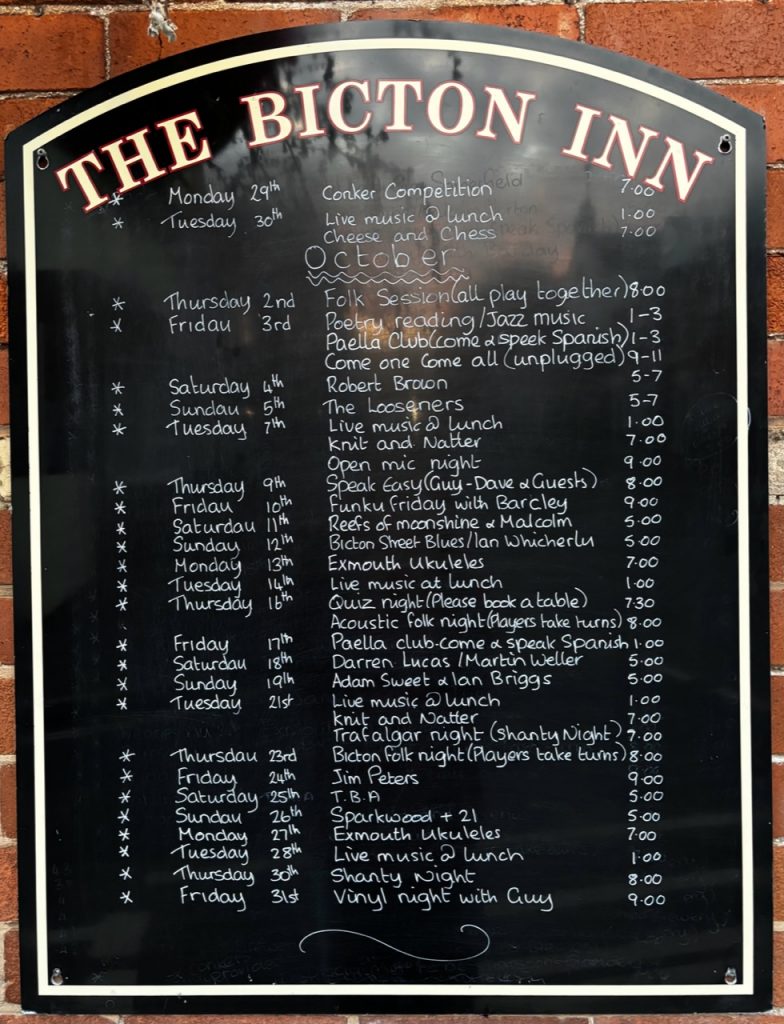 THE BICTON INN
* Monday 29th Conker Competition 7.00
* Tuesday 30th Live music @ lunch 1.00
Cheese and Chess 7.00
October
* Thursday 2nd Folk Session (all play together) 8.00
* Friday 3rd Poetry reading/Jazz music 1-3
Paella Club (come & speek Spanish) 1-3
Come one Come all (unplugged) 9-11
* Saturday 4th Robert Brown 5-7
* Sunday 5th The Looseners 5-7
* Tuesday 7th Live music @ lunch 1.00
Knit and Natter 7.00
Open mic night 9.00
* Thursday 9th Speak Easy (Guy-Dave & Guests) 8.00
* Friday 10th Funky Friday with Barcley 9.00
* Saturday 11th Reefs of moonshine & Malcolm 5.00
* Sunday 12th Bicton Street Blues/Ian Whicherly 5.00
* Monday 13th Exmouth Ukuleles 7.00
* Tuesday 14th Live music at lunch 1.00
* Thursday 16th Quiz night (Please book a table) 7.30
Acoustic folk night (Players take turns) 8.00
* Friday 17th Paella club-Come & speak Spanish 1.00
* Saturday 18th Darren Lucas / Martin Weller 5.00
* Sunday 19th Adam Sweet & Ian Briggs 5.00
* Tuesday 21st Live music @ lunch 1.00
Knit and Natter 7.00
Trafalgar night (Shanty Night) 7.00
* Thursday 23rd Bicton folk night (Players take turns) 8.00
* Friday 24th Jim Peters 9.00
* Saturday 25th T.B.A 5.00
* Sunday 26th Sparkwood + 21 5.00
* Monday 27th Exmouth Ukuleles 7.00
* Tuesday 28th Live music @ lunch 1.00
* Thursday 30th Shanty Night 8.00
* Friday 31st Vinyl night with Guy 9.00